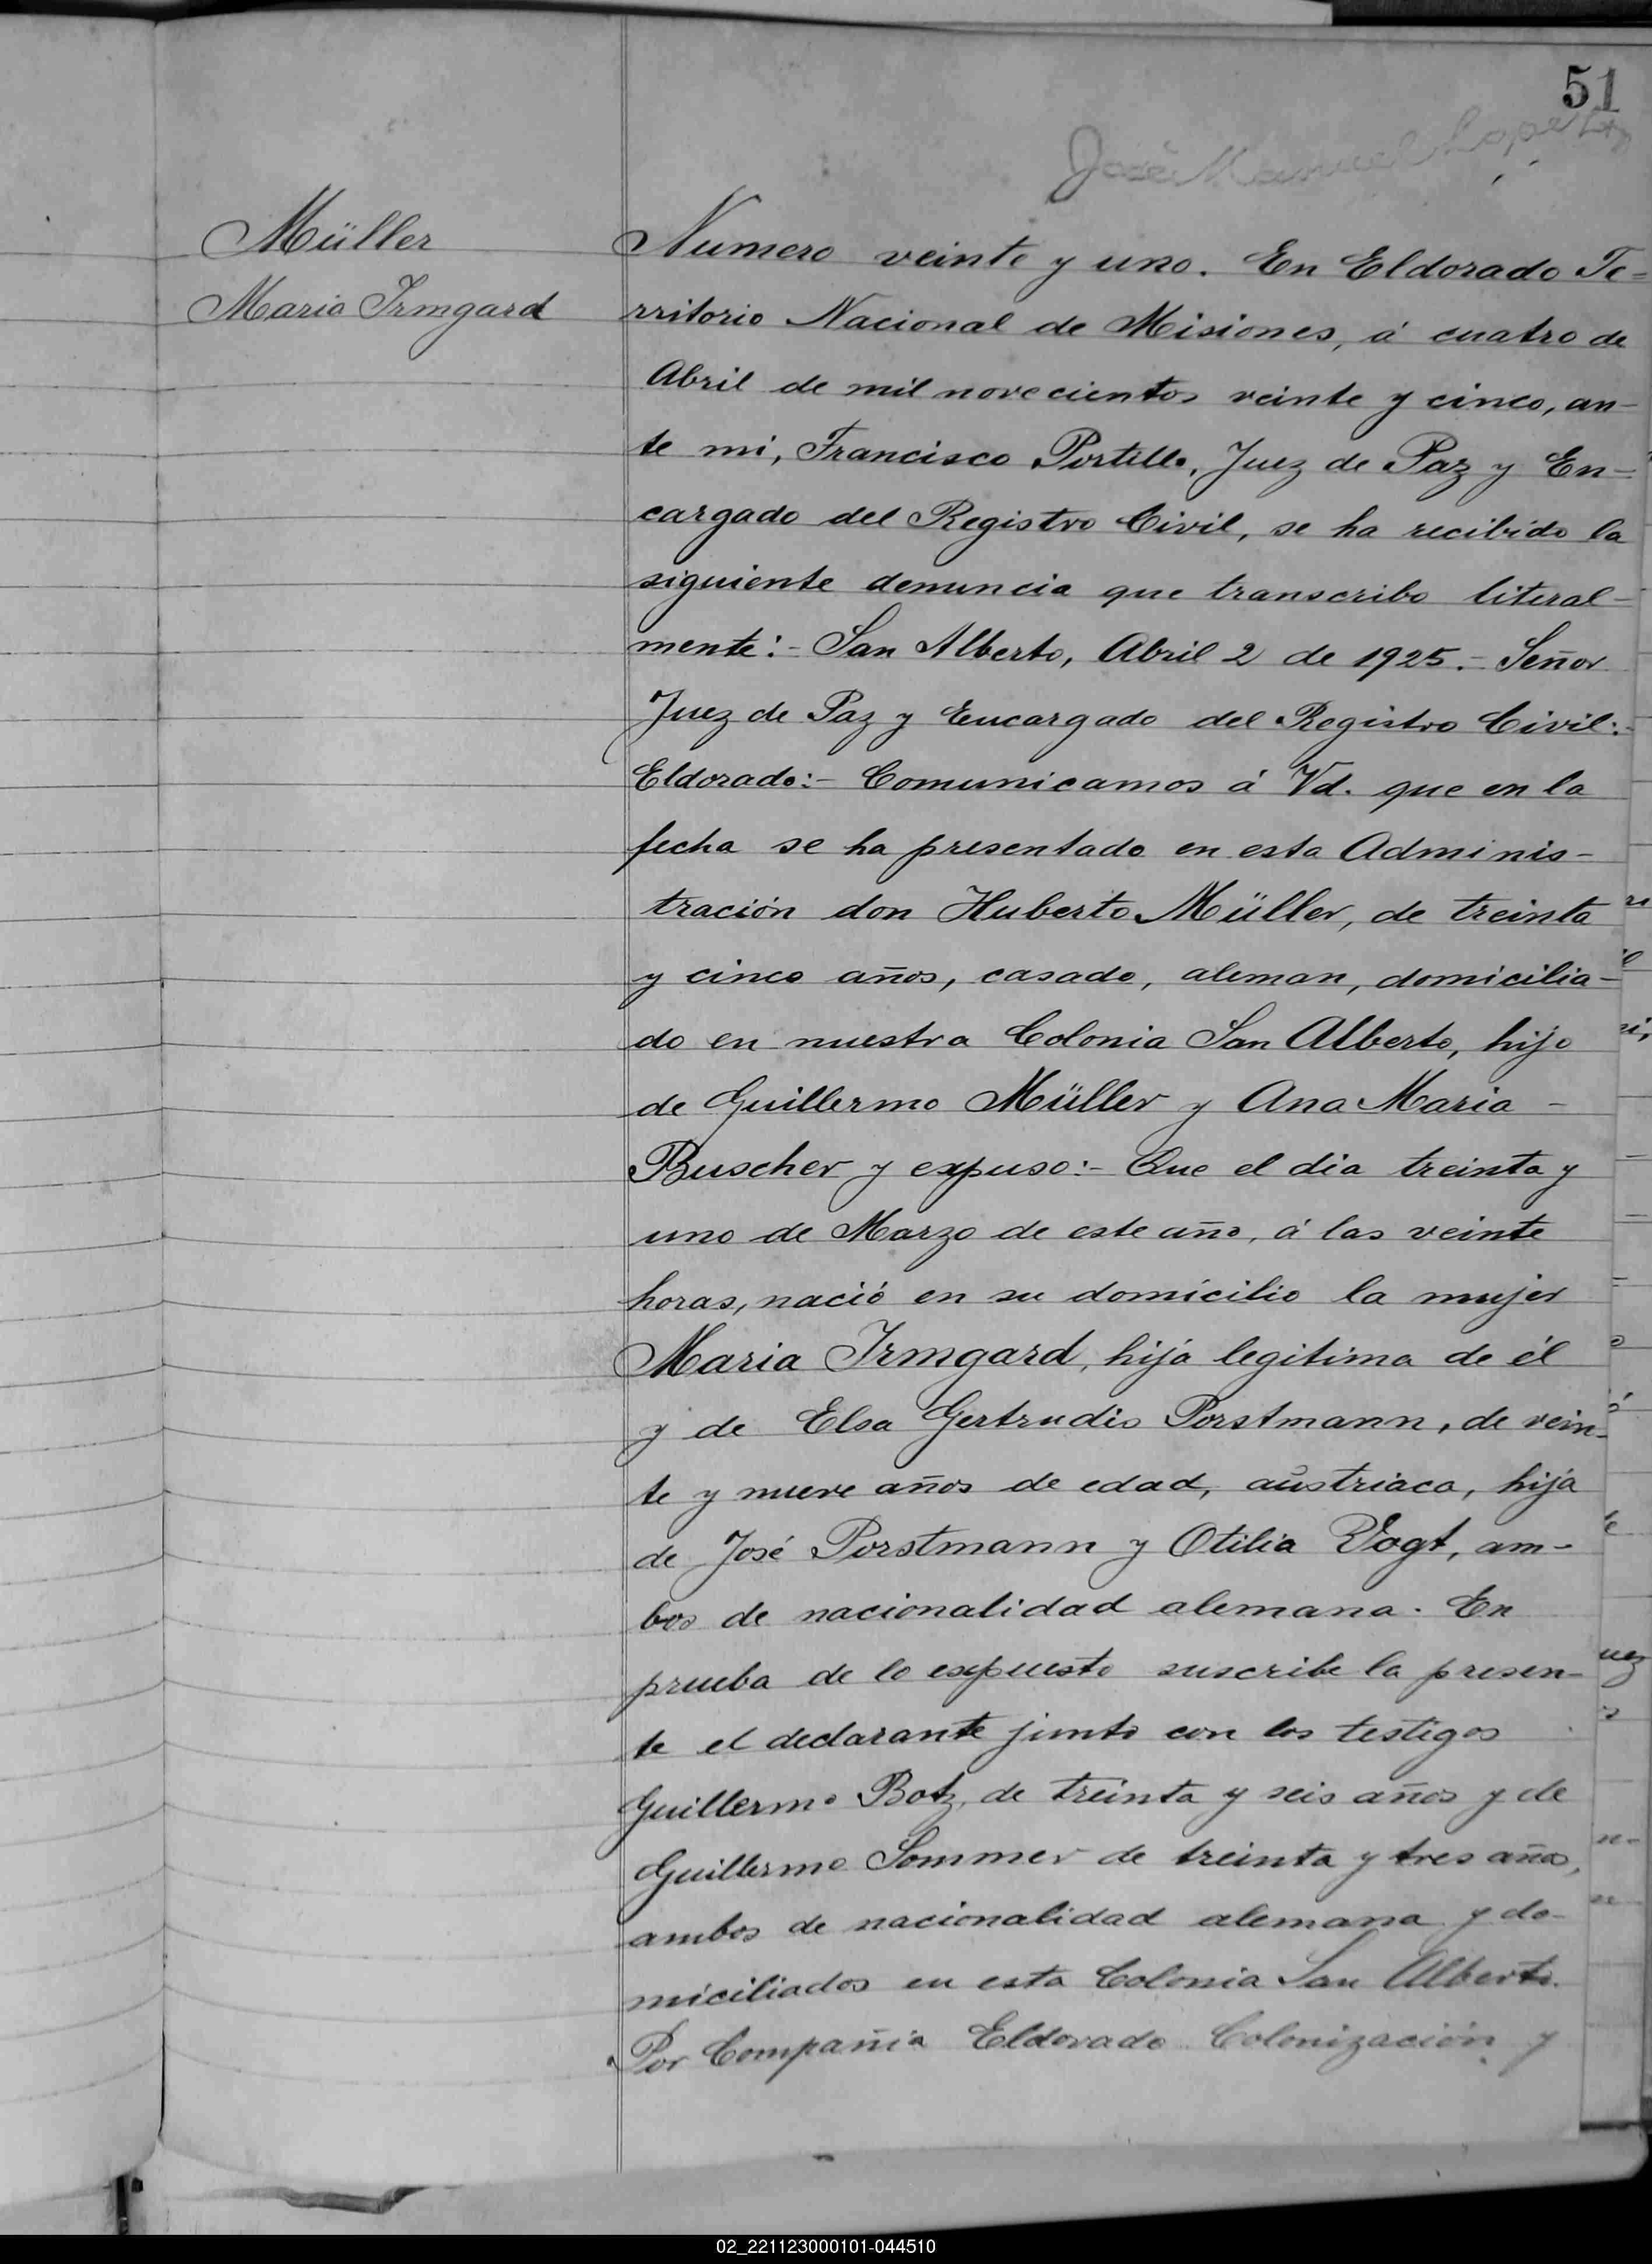 51
José Manuel
Müller
Maria Irmgard
Numero veinte y uno. En Eldorado Te=
rritorio Nacional de Misiones, á cuatro de
Abril de mil novecientos veinte y cinco, an-
te mi, Francisco Portillo, Juez de Paz y En-
cargado del Registro Civil, se ha recibido la
siguiente denuncia que transcribo literal-
mente:- San Alberto, Abril 2 de 1925.- Señor
Juez de Paz y Encargado del Registro Civil:-
Eldorado:- Comunicamos á Vd. que en la
fecha se ha presentado en esta Adminis-
tración don Huberto Müller, de treinta
y cinco años, casado, aleman, domicilia-
do en nuestra Colonia San Alberto, hijo
de Guillermo Müller y Ana Maria -
Buscher y expuso:- Que el dia treinta y
uno de Marzo de este año, á las veinte
horas, nació en su domicilio la mujer
Maria Irmgard, hija legitima de él
y de Elsa Gertrudis Porstmann, de vein-
te y nueve años de edad, austriaca, hija
de José Porstmann y Otilia Vogt, am-
bos de nacionalidad alemana. En
prueba de lo expuesto suscribe la presen-
te el declarante junto con los testigos
Guillermo Botz, de treinta y seis años y de
Guillermo Sommer de treinta y tres años,
ambos de nacionalidad alemana y do-
miciliados en esta Colonia San Alberto.
Por Compañia Eldorado Colonización y
02_221123000101-044510